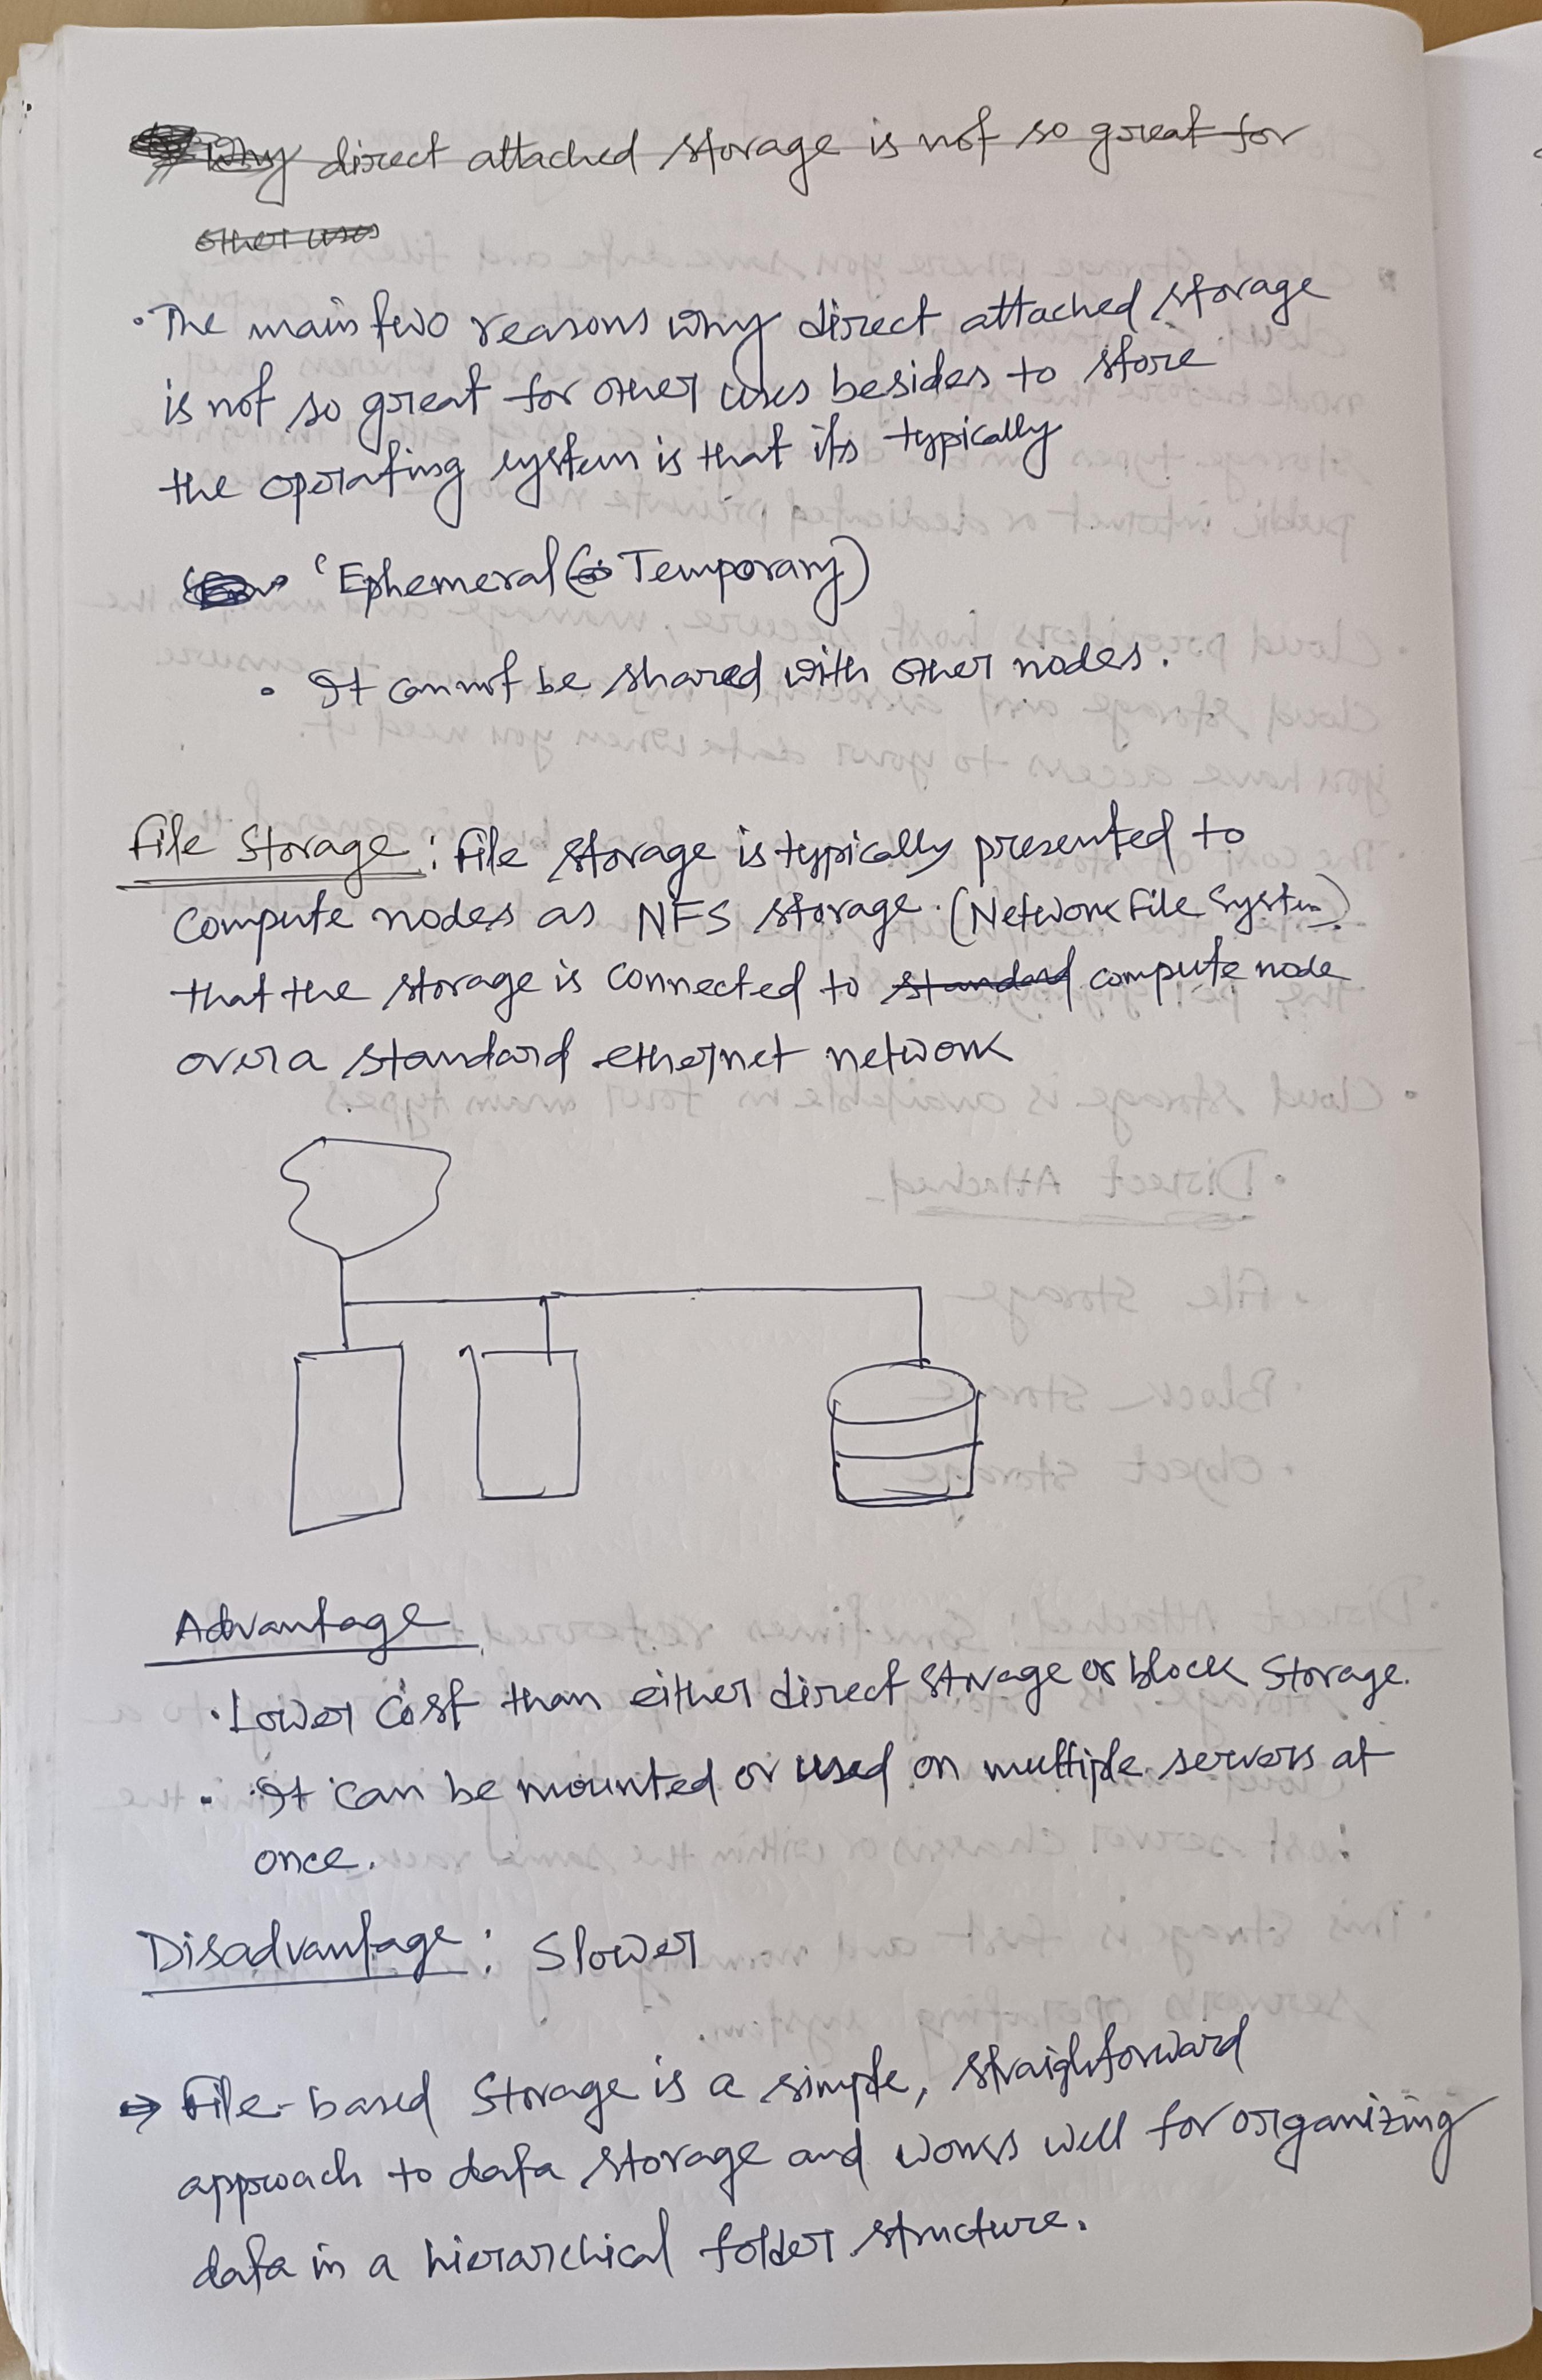 Why direct attached storage is not so great for
other uses
• The main two reasons why direct attached storage
is not so great for other uses besides to store
the operating system is that its typically
Ephemeral (Temporary)
• It cannot be shared with other nodes.
File Storage : File storage is typically presented to
compute nodes as NFS storage. (Network File System)
that the storage is connected to standard compute node
over a standard ethernet network
Advantage
• Lower cost than either direct storage or block storage.
• It can be mounted or used on multiple servers at
once.
Disadvantage : Slower
⇒ File-based Storage is a simple, straightforward
approach to data storage and works well for organizing
data in a hierarchical folder structure.